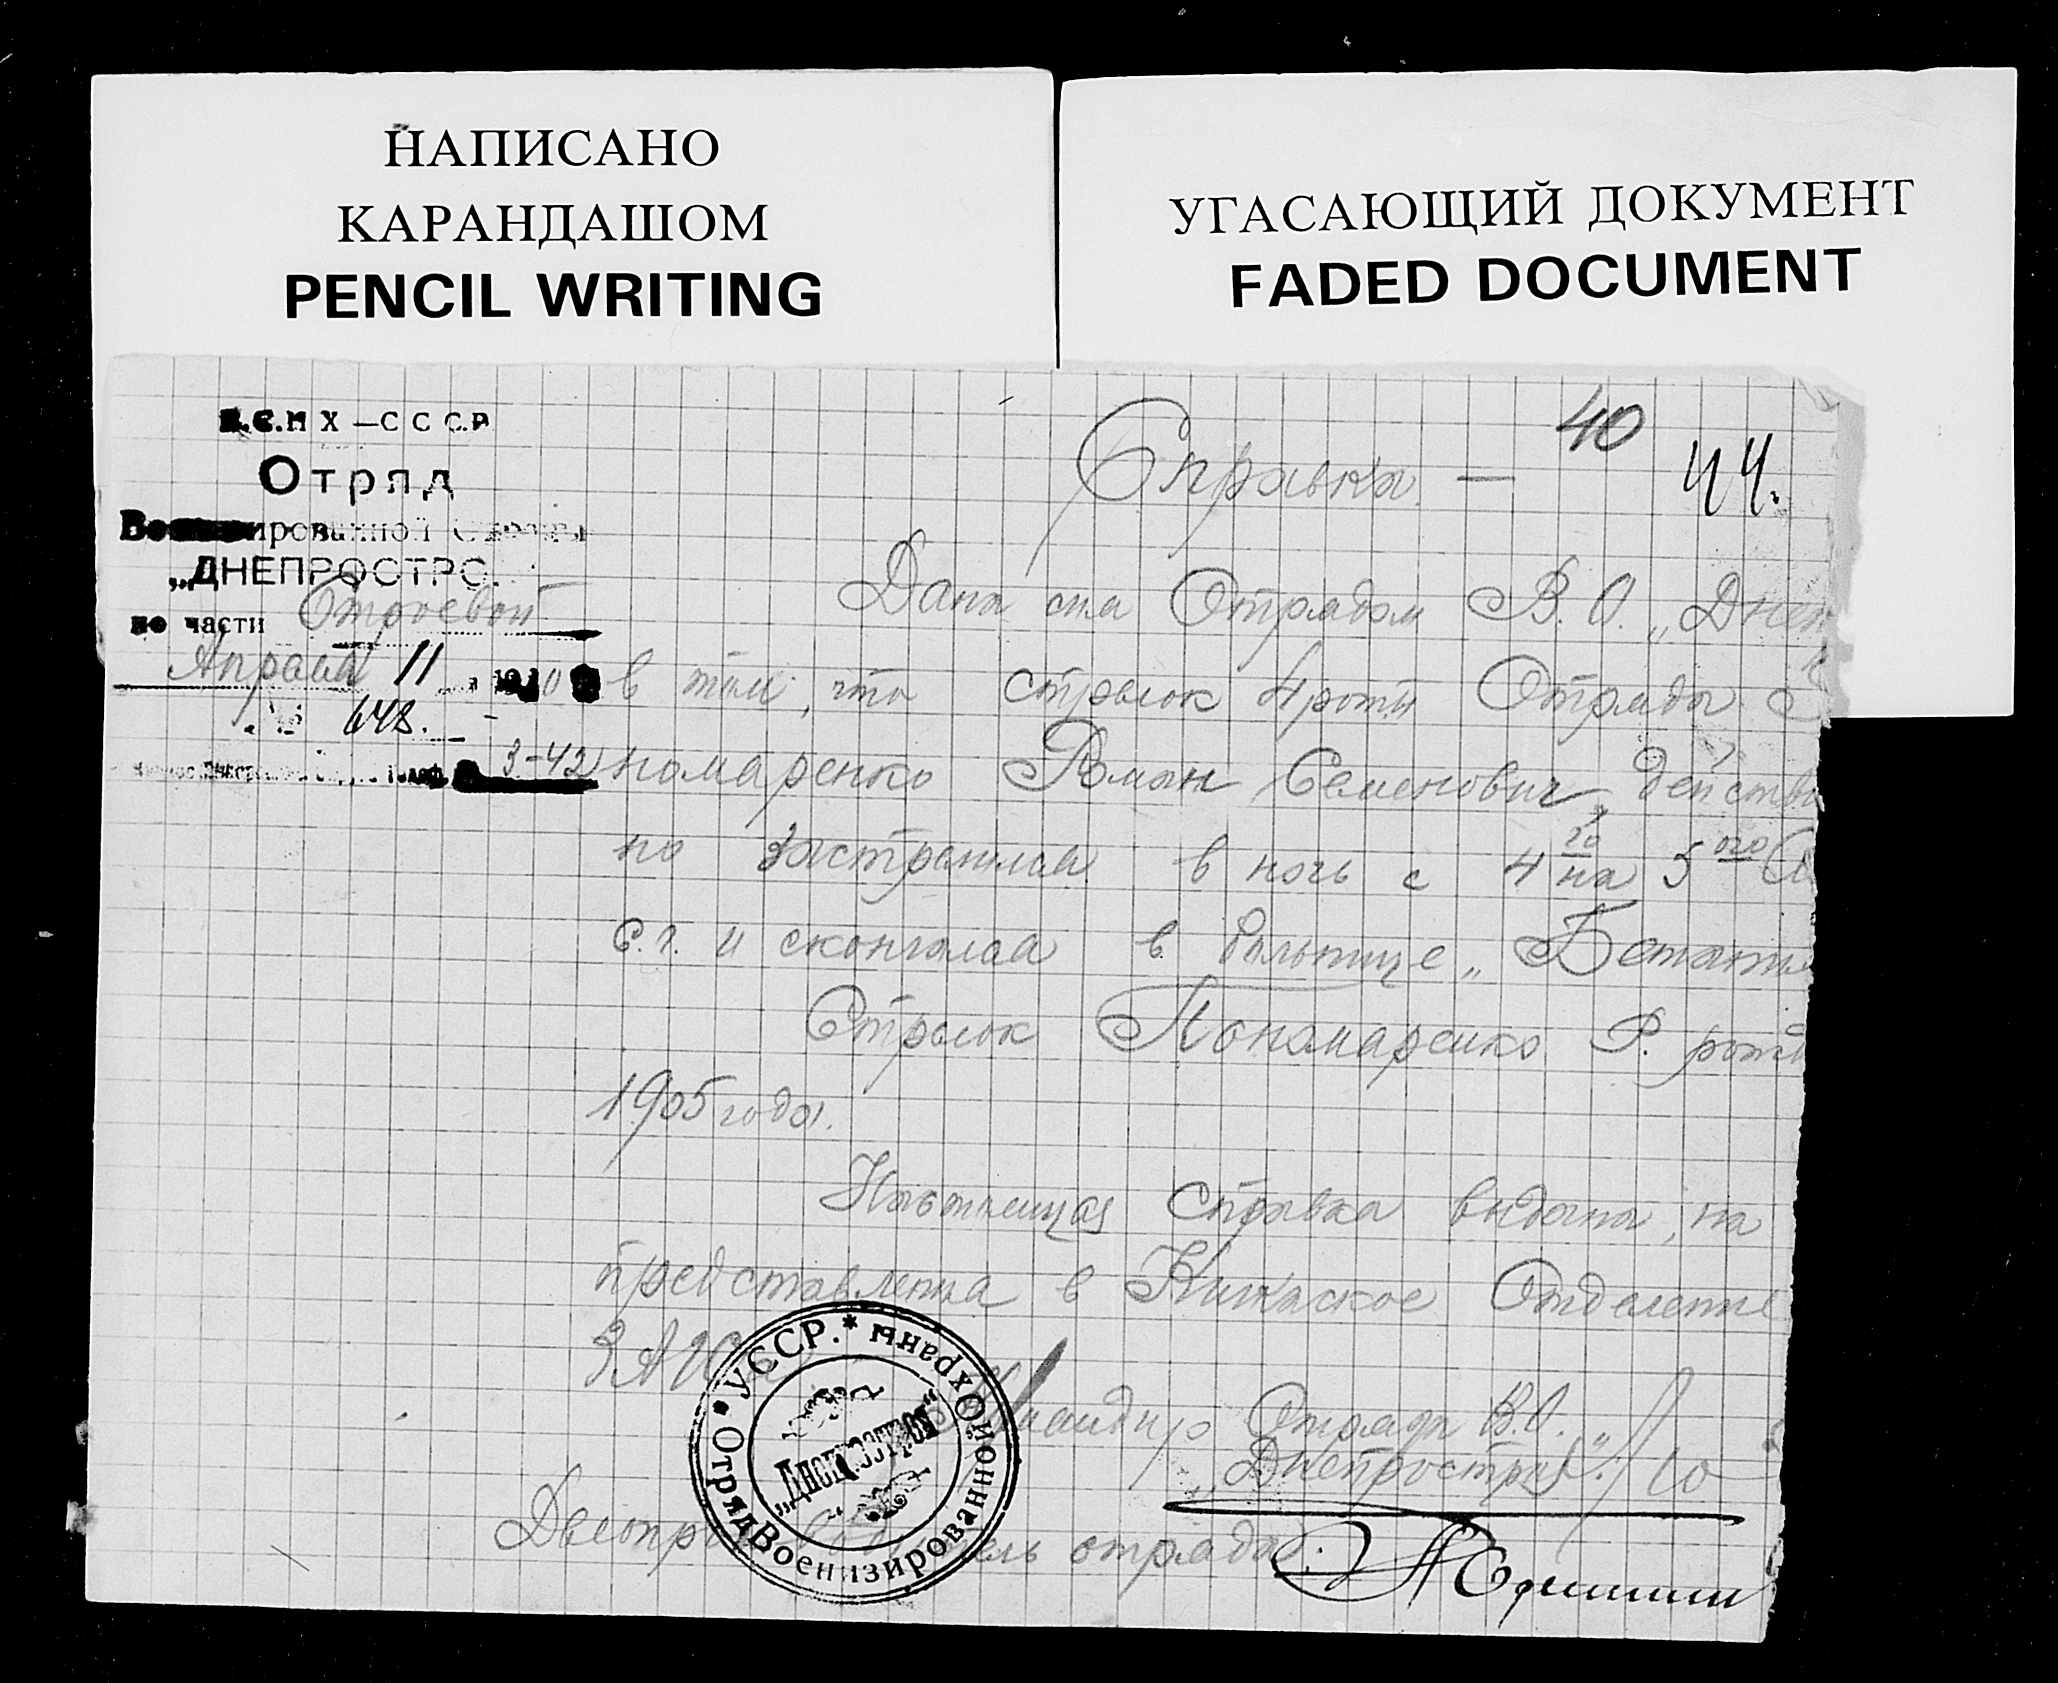 НАПИСАНО
КАРАНДАШОМ
PENCIL WRITING
УГАСАЮЩИЙ ДОКУМЕНТ
FADED DOCUMENT
В.С.Н Х — С С С.Р
Отряд
Военизированной Охраны
„ДНЕПРОСТРО
по части Строевой
Апреля 11 1930
№ 648.
3-42
40
44.
Справка —
Дана сия Отрядом В.О. „Днеп
в том, что стрелок 4 роты Отряда
номаренко Роман Семенович, действи
но застрелился в ночь с 4го на 5ого
с.г. и скончался в больнице „
Стрелок Пономаренко Р. рожд
1905 года.
Настоящая справка выдана, на
представления в Кичкаское Отделение
ЗАГС
Командир Отряда В.О.
„Днепрострой"
Делопроизводитель отряда:
* УССР. * Отряд Военизированной Охраны
„Днепрострой"